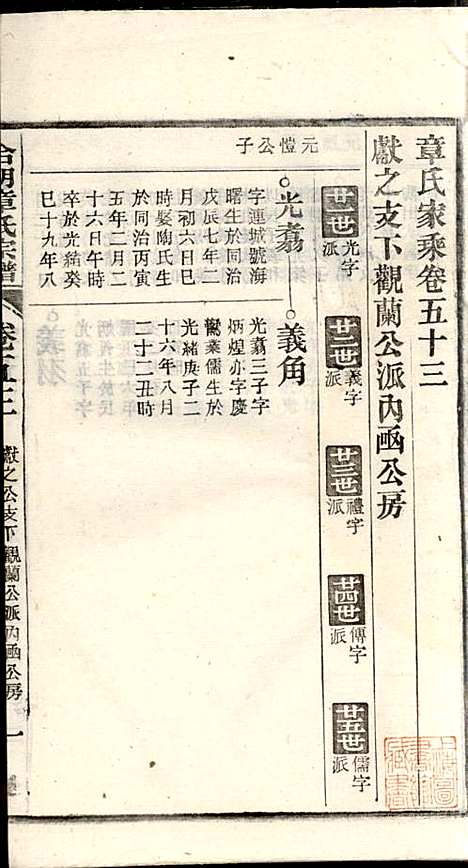 章氏家乘卷五十三
獻之支下觀蘭公派內函公房
廿一世 光字派
廿二世 義字派
廿三世 禮字派
廿四世 傳字派
廿五世 儒字派
元愷公子
光翥
義角
字連城號海
曙生於同治
戊辰七年二
月初六日巳
時娶陶氏生
於同治丙寅
五年二月二
十六日午時
卒於光緒癸
巳十九年八
光翥三子字
炳煌亦字慶
鸞業儒生於
光緒庚子二
十六年八月
二十二丑時
合朗章氏宗譜
卷五三
獻之公支下觀蘭公派內函公房
一